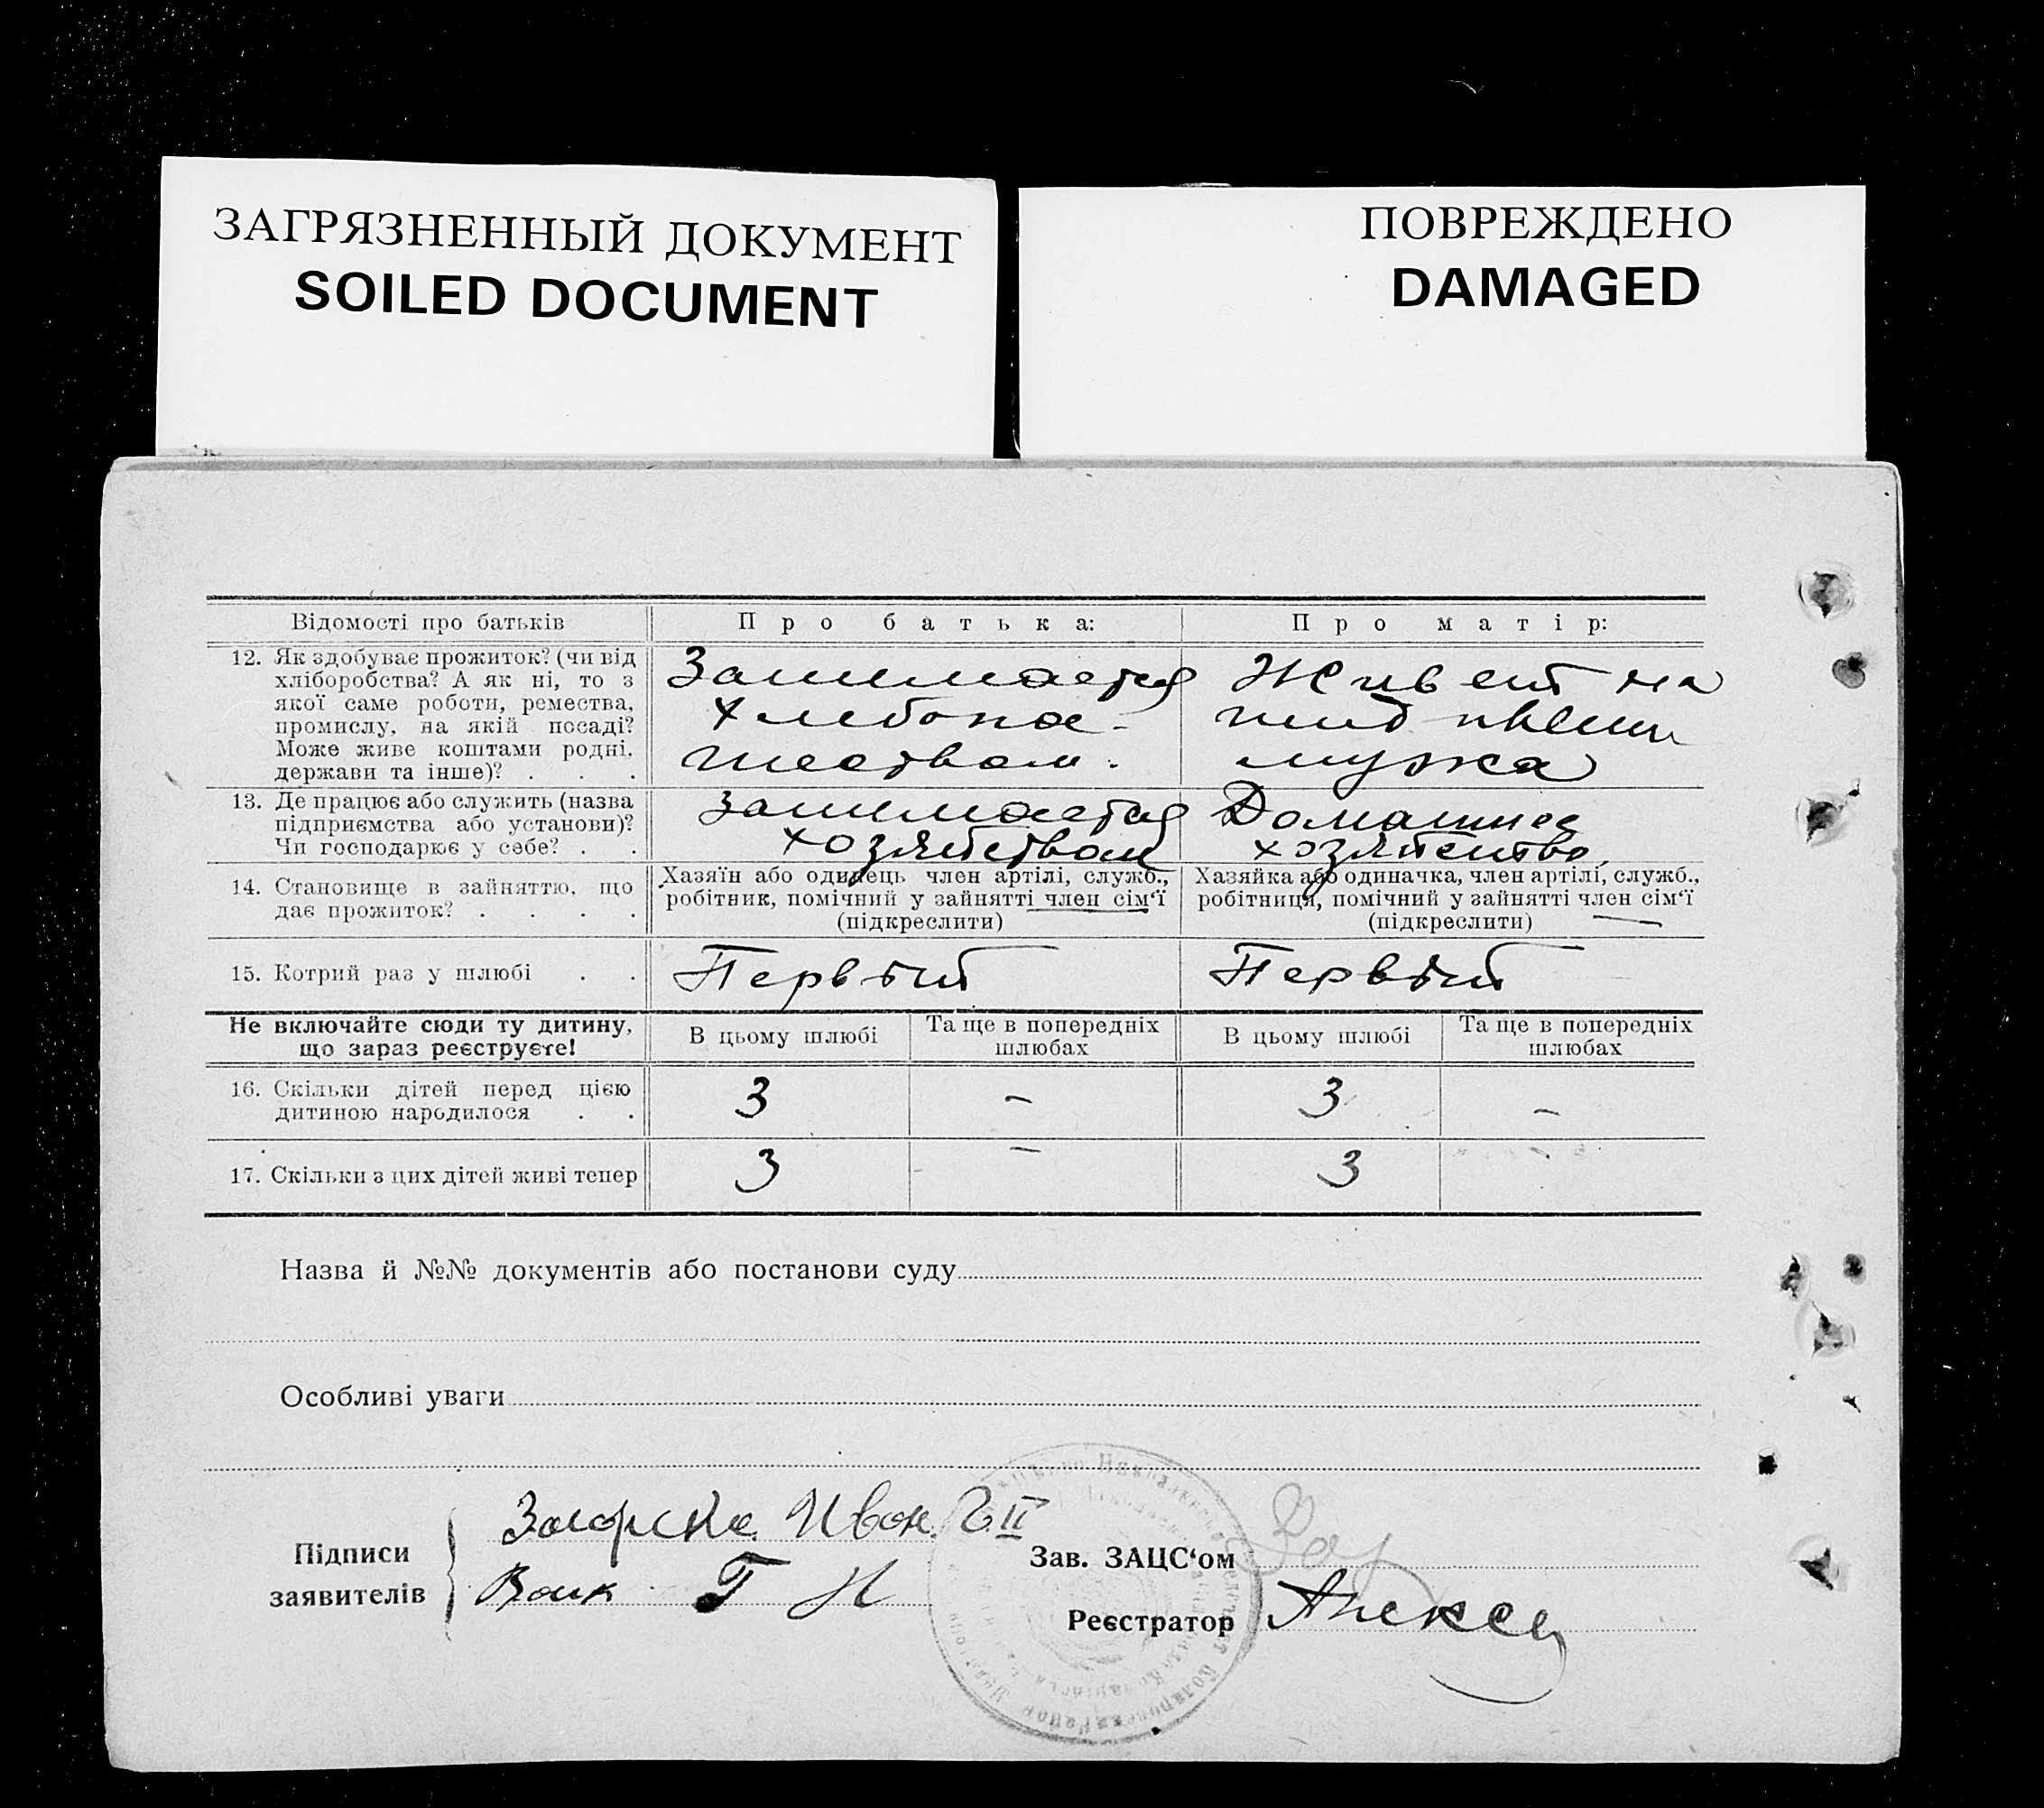 ЗАГРЯЗНЕННЫЙ ДОКУМЕНТ
SOILED DOCUMENT
ПОВРЕЖДЕНО
DAMAGED
Відомості про батьків
Про батька:
Про матір:
12. Як здобуває прожиток? (чи від
хліборобства? А як ні, то з
якої саме роботи, ремества,
промислу, на якій посаді?
Може живе коштами родні,
держави та інше)? . . .
Занимается
хлебопа-
шеством.
Живет на
мужа
13. Де працює або служить (назва
підприємства або установи)?
Чи господарює у себе? . .
Занимается
хозяйством
Домашнее
хозяйство
14. Становище в зайняттю, що
дає прожиток? . . . .
Хазяїн або одинець член артілі, служб.,
робітник, помічний у зайнятті член сім'ї
(підкреслити)
Хазяйка або одиначка, член артілі, служб.,
робітниця, помічний у зайнятті член сім'ї
(підкреслити)
15. Котрий раз у шлюбі . .
Первый
Первый
Не включайте сюди ту дитину,
що зараз реєструєте!
В цьому шлюбі
Та ще в попередніх
шлюбах
В цьому шлюбі
Та ще в попередніх
шлюбах
16. Скільки дітей перед цією
дитиною народилося . .
3
–
3
–
17. Скільки з цих дітей живі тепер
3
–
3
Назва й №№ документів або постанови суду
Особливі уваги
Підписи
заявителів
Иван
II
Г Н
Зав. ЗАЦС'ом
Реєстратор